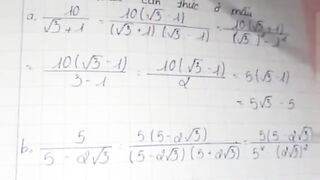 căn thức ở mẫu
a. 10/(√3 + 1) = 10(√3 - 1)/((√3 + 1)(√3 - 1)) = 10(√3 - 1)/((√3)² - 1²
= 10(√3 - 1)/(3 - 1) = 10(√3 - 1)/2 = 5(√3 - 1)
= 5√3 - 5
b. 5/(5 - 2√3) = 5(5 - 2√3)/((5 - 2√3)(5 + 2√3)) = 5(5 - 2√3)/(5² (2√3)²